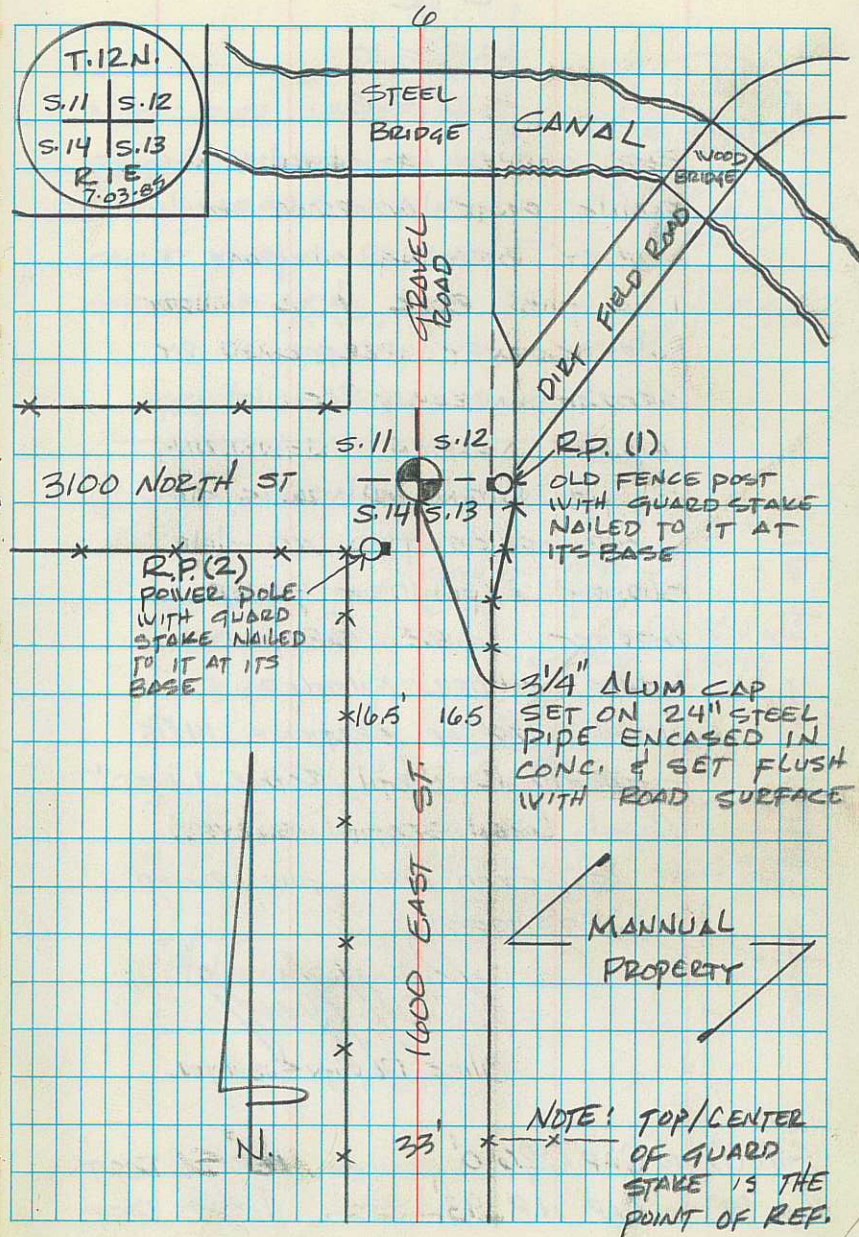 6
T.12N.
S.11 S.12
S.14 S.13
R1E
7-03-85
STEEL
BRIDGE
CANAL
WOOD
BRIDGE
GRAVEL
ROAD
DIRT FIELD ROAD
S.11 S.12
S.14 S.13
3100 NORTH ST
R.P. (1)
OLD FENCE POST
WITH GUARD STAKE
NAILED TO IT AT
ITS BASE
R.P. (2)
POWER POLE
WITH GUARD
STAKE NAILED
TO IT AT ITS
BASE
16.5' 16.5
3 1/4" ALUM CAP
SET ON 24" STEEL
PIPE ENCASED IN
CONC. & SET FLUSH
WITH ROAD SURFACE
1600 EAST ST.
MANNUAL
PROPERTY
N.
33'
NOTE: TOP/CENTER
OF GUARD
STAKE IS THE
POINT OF REF.